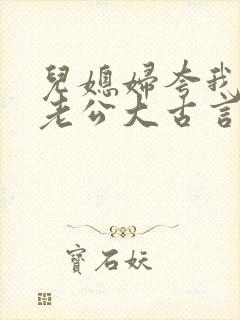 兒媳婦夸我
老公大古言
寶石妖